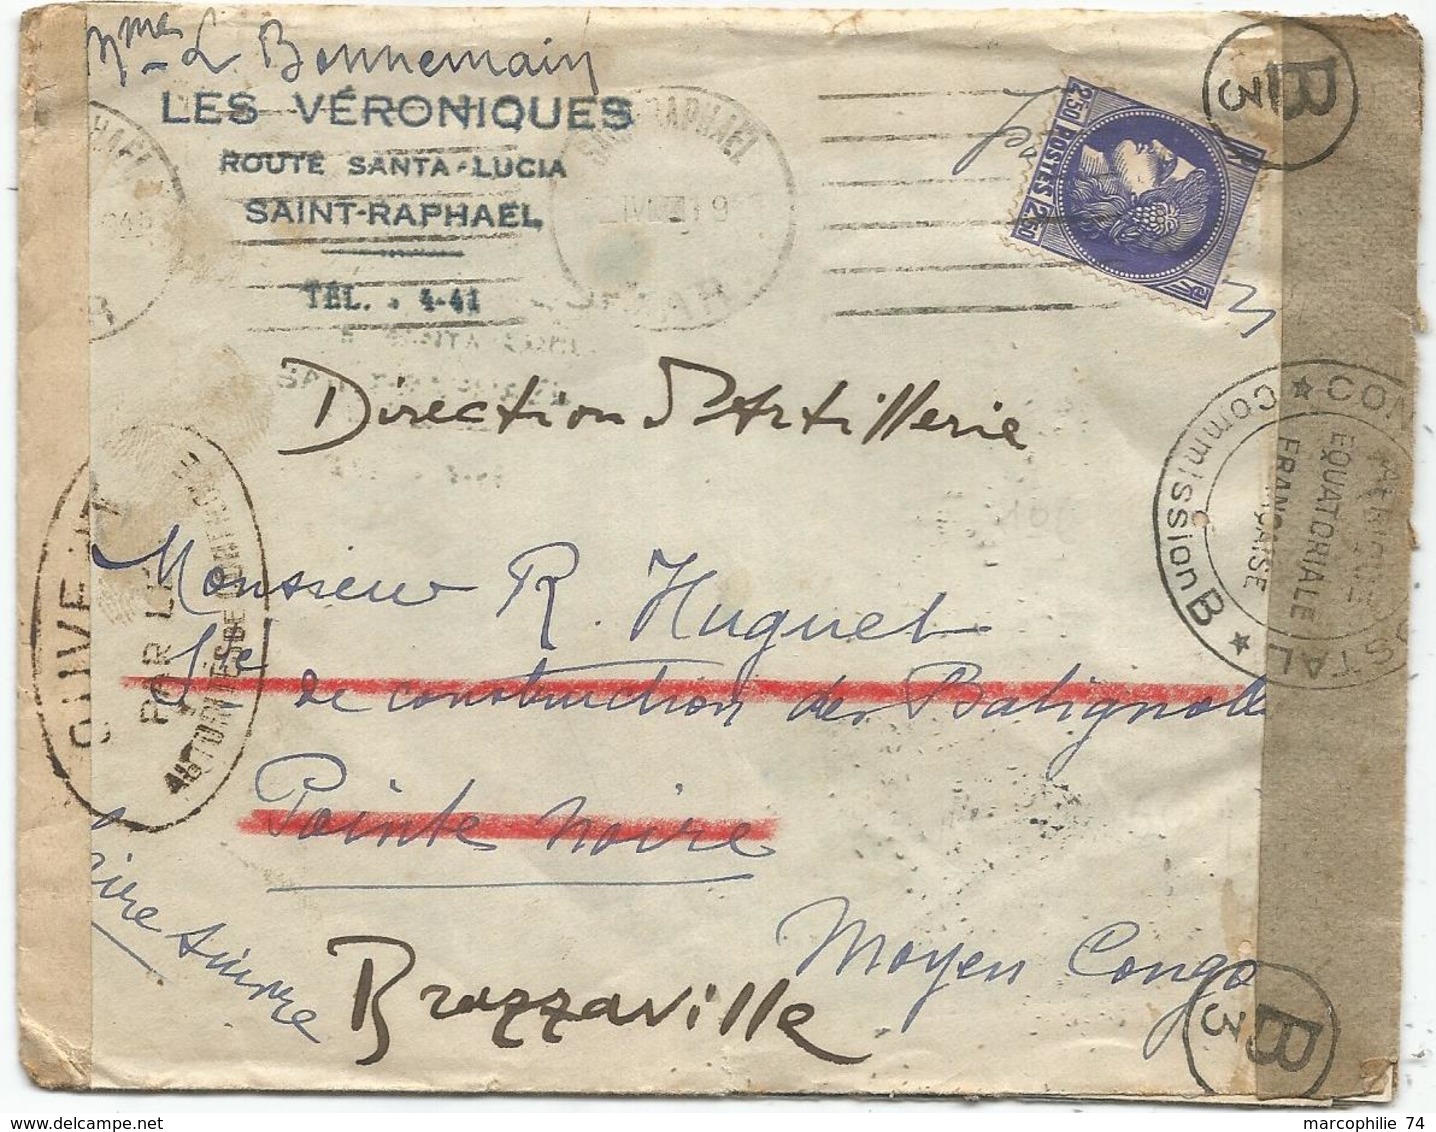 Mme L. Bonnemain
LES VÉRONIQUES
ROUTE SANTA-LUCIA
SAINT-RAPHAEL
TÉL. : 4-41
SAINT-RAPHAEL
VAR
2,50 POSTES 2,50
RF
B
3
Direction d'Artillerie
Monsieur R. Huguet
Sté de construction des Batignolles
Pointe Noire
Moyen Congo
Brazzaville
OUVERT
PAR LES
AUTORITÉS DE CONTROLE
CONTROLE POSTAL
Commission B
AFRIQUE
EQUATORIALE
FRANÇAISE
B
3
www.delcampe.net
marcophilie 74